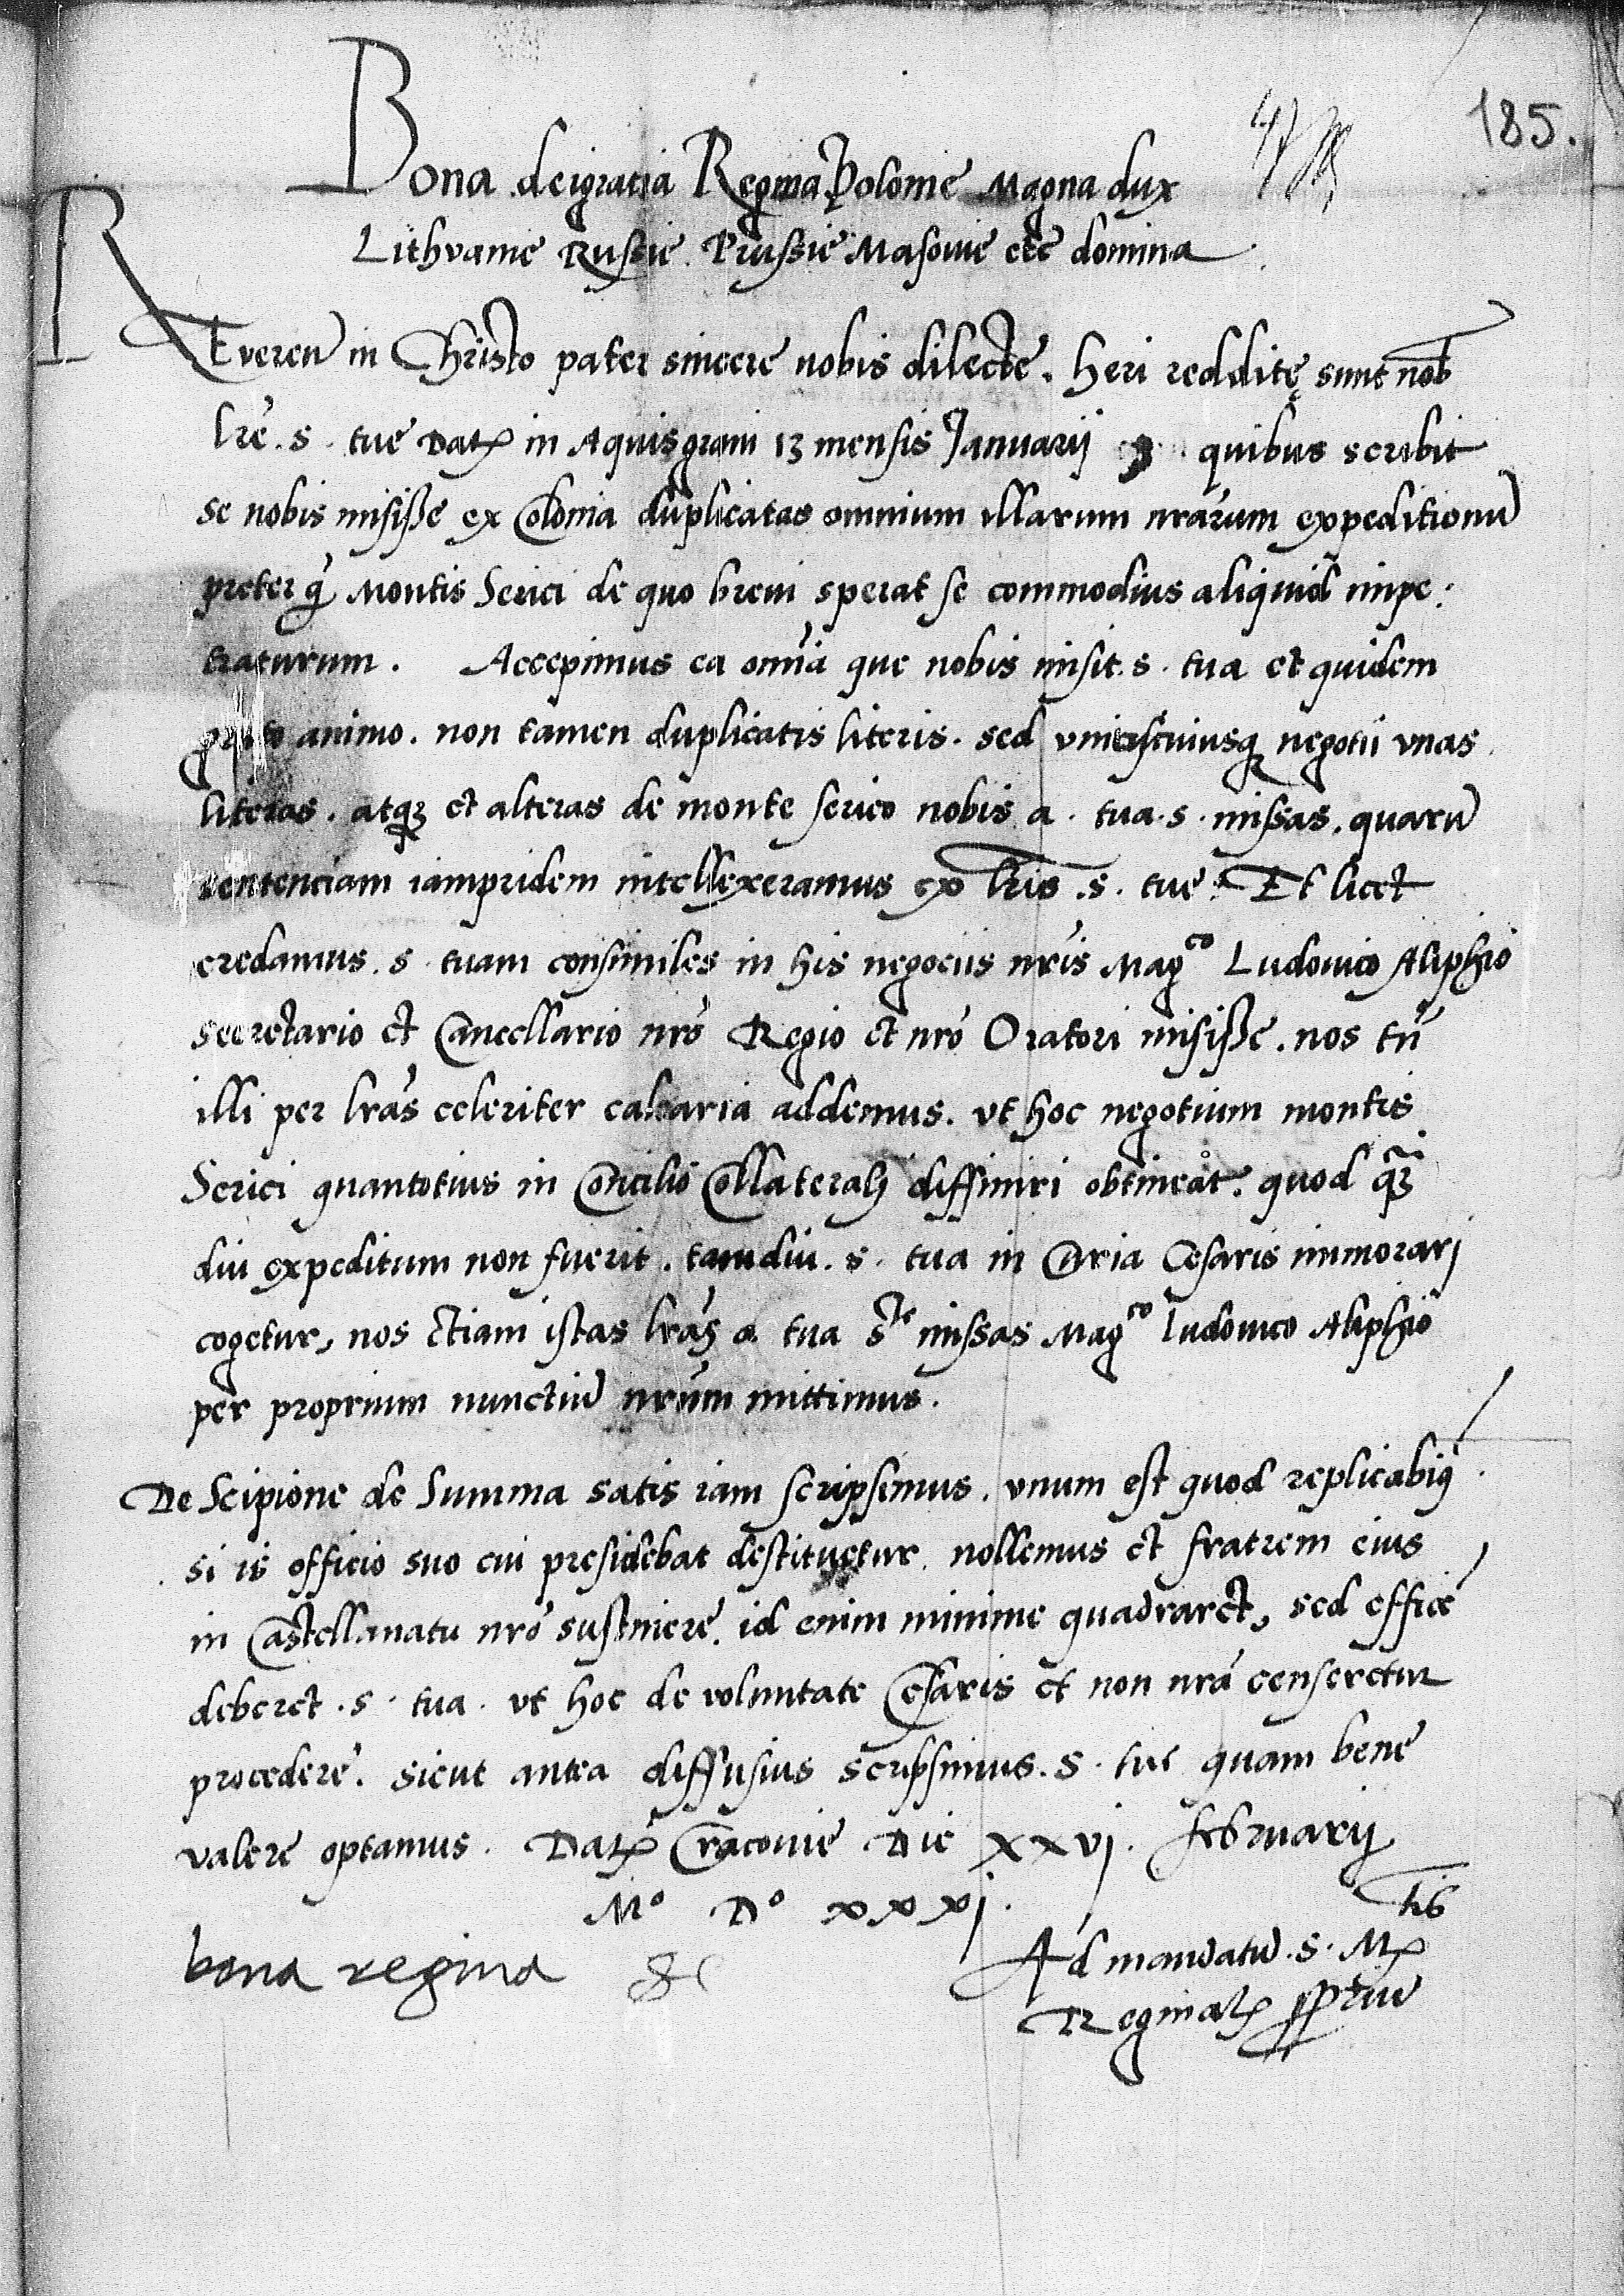 185.
Bona dei gratia Regina Polonie Magna dux
Lithvanie Russie Prussie Masovie etc domina
Reveren̄ in Christo pater sincere nobis dilecte. Heri redditę sunt nob̄
lr̄e. s. tue Datꝝ in Aquisgrani 13 mensis Januarij quibus scribit
se nobis misisse ex Colonia duplicatas omnium illarum nr̄arum expeditionū
preter q̄ Montis Serici de quo brevi sperat se commodius aliquid impe:
traturum. Accepimus ea omīa que nobis misit. s. tua et quidem
grato animo. non tamen duplicatis literis. sed uniuscuiusqꝫ negotii vnas
literas. atqꝫ et alteras de monte serico nobis a. tua. s. missas. quarū
sentenciam iampridem intellexeramus ex lr̄is. s. tue. Et licet
credamus. s. tuam consimiles in his negociis nr̄is Mag^co Ludovico Aliphio
secretario et Cancellario nr̄o Regio et nr̄o Oratori misisse. nos tn̄
illi per lr̄as celeriter calcaria addemus. vt hoc negotium montis
Serici quantotius in Concilio Collaterali diffiniri obtineat. quod qꝫ
diu expeditum non fuerit. tamdiu. s. tua in Curia Cesaris immorari
cogetur, nos etiam istas lr̄as a tua s^te missas Mag^co Ludovico Aliphio
per proprium nunctiū nr̄um mittimus.
De Scipione de Summa satis iam scripsimus. vnum est quod replicabiꝰ
si is officio suo cui presidebat destituetur. nollemus et fratrem eius
in Castellanatu nr̄o sustinere. id enim minime quadraret, sed efficē
deberet. s. tua. vt hoc de voluntate Cesaris et non nr̄a censeretur
procedere. sicut antea diffusius scripsimus. S. tue quam bene
valere optamus. Datꝝ Cracovie Die xxvj. februarij
M° D° xxxj.
bona regina &c
Ad mandatū. S. M^tis
Reginalꝫ ꝓpriū